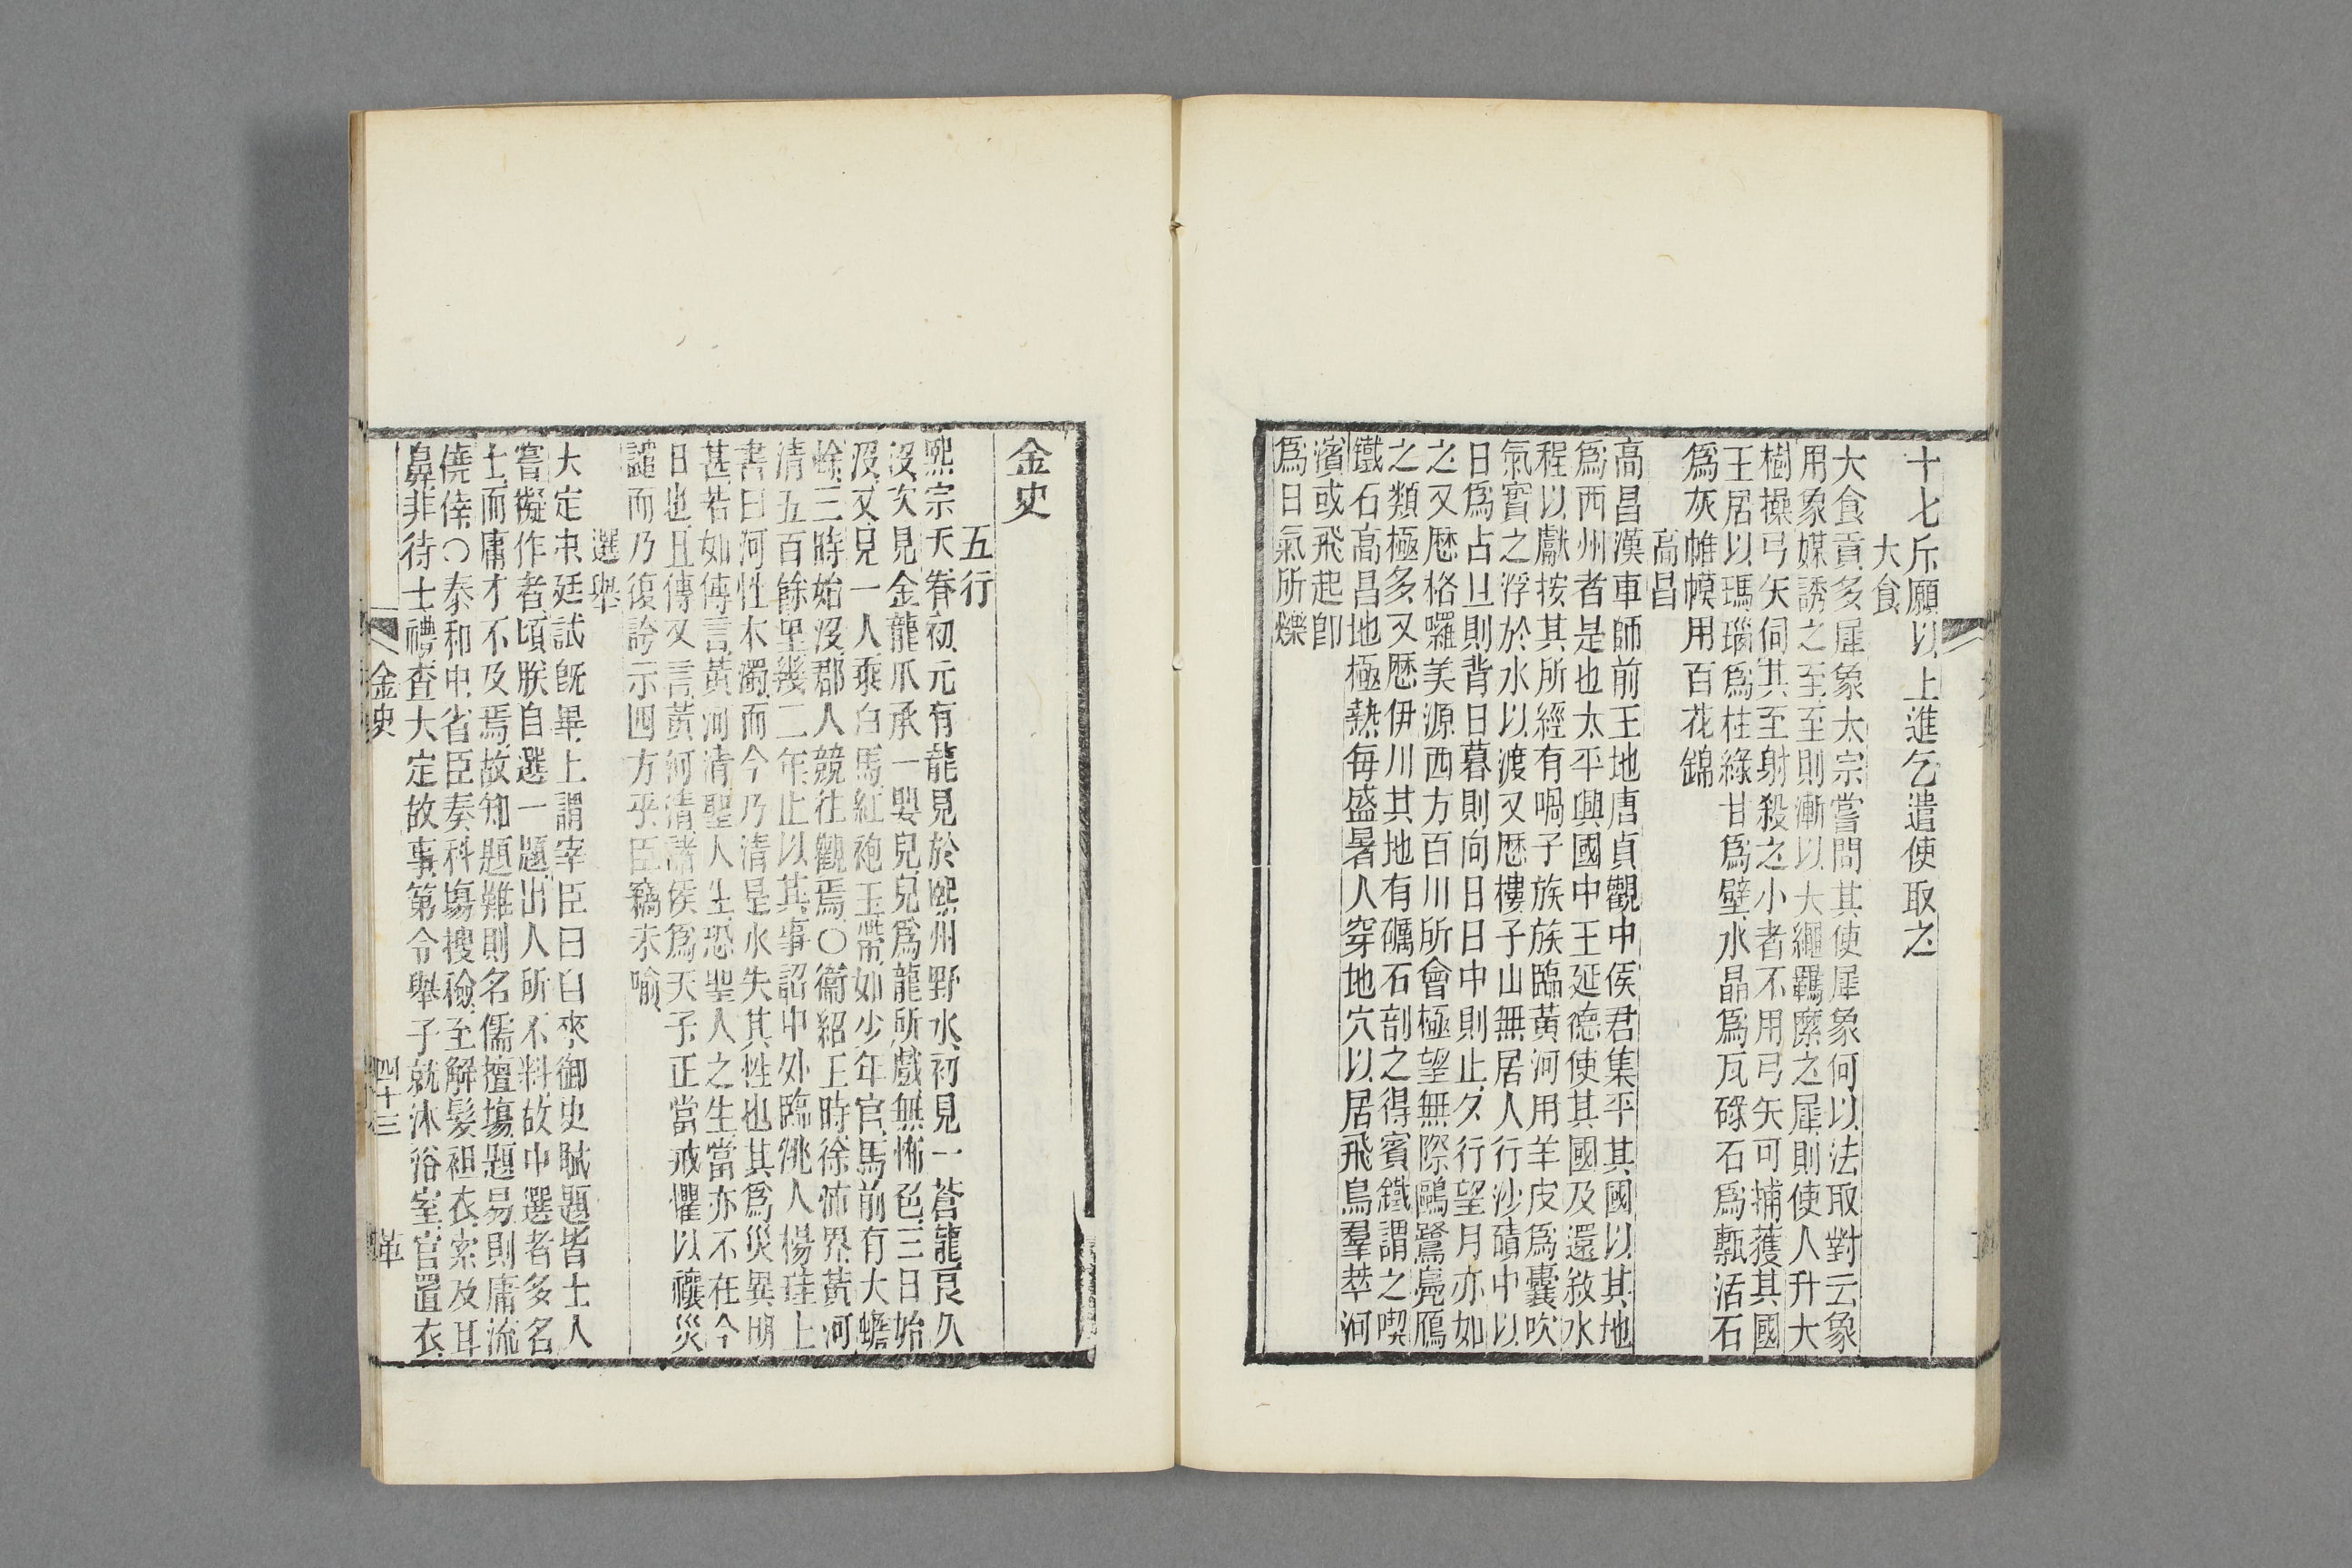 十七斤願以上進乞遣使取之
大食
大食貢多犀象太宗嘗問其使犀象何以法取對云象
用象媒誘之至至則漸以大繩羈縻之犀則使人升大
樹操弓矢伺其至射殺之小者不用弓矢可捕獲其國
王居以瑪瑙爲柱綠甘爲壁水晶爲瓦碌石爲甎活石
爲灰帷幙用百花錦
高昌
高昌漢車師前王地唐貞觀中侯君集平其國以其地
爲西州者是也太平興國中王延德使其國及還敘水
程以獻按其所經有喎子族族臨黃河用羊皮爲囊吹
氣實之浮於水以渡又歷樓子山無居人行沙磧中以
日爲占旦則背日暮則向日日中則止夕行望月亦如
之又歷格囉美源西方百川所會極望無際鷗鷺鳧鴈
之類極多又歷伊川其地有礪石剖之得賓鐵謂之喫
鐵石高昌地極熱每盛暑人穿地穴以居飛鳥羣萃河
濱或飛起卽
爲日氣所爍
金史
五行
熙宗天眷初元有龍見於熙州野水初見一蒼龍良久
沒次見金龍爪承一嬰兒兒爲龍所戲無怖色三日始
沒又見一人乘白馬紅袍玉帶如少年官馬前有大蟾
蜍三時始沒郡人競往觀焉○衞紹王時徐沛界黃河
清五百餘里幾二年止以其事詔中外臨洮人楊珪上
書曰河性本濁而今乃清是水失其性也其爲災異明
甚若如傳言黃河清聖人生恐聖人之生當亦不在今
日也且傳又言黃河清諸侯爲天子正當戒懼以禳災
譴而乃復誇示四方乎臣竊未喻
選舉
大定中廷試旣畢上謂宰臣曰自來御史賦題皆士人
嘗擬作者頃朕自選一題出人所不料故中選者多名
士而庸才不及焉故知題難則名儒擅塲題易則庸流
僥倖○泰和中省臣奏科塲搜檢至解髮袒衣索及耳
鼻非待士禮查大定故事第令舉子就沐浴室官置衣
金史
四十三
革